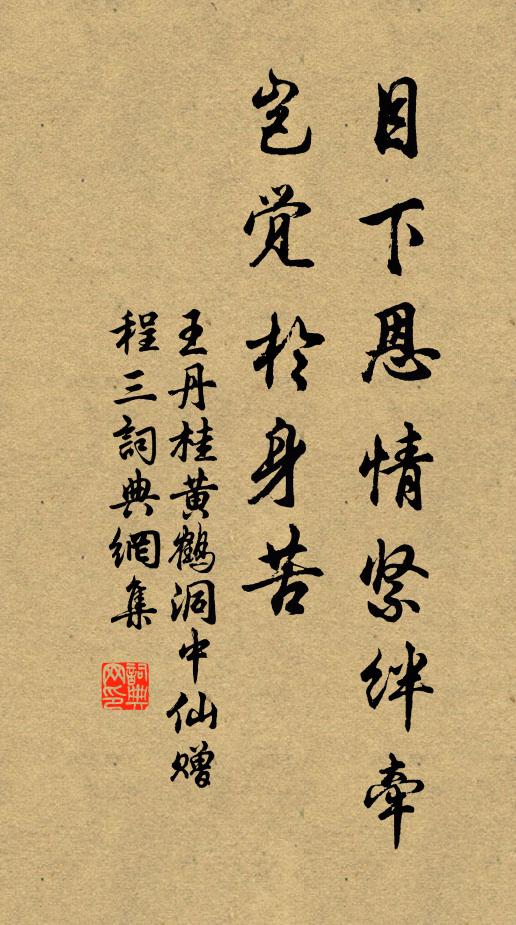 目下恩情紧绊牵
岂觉於身苦
王丹桂黄鹤洞中仙赠
程三詞典網集
詞典网印